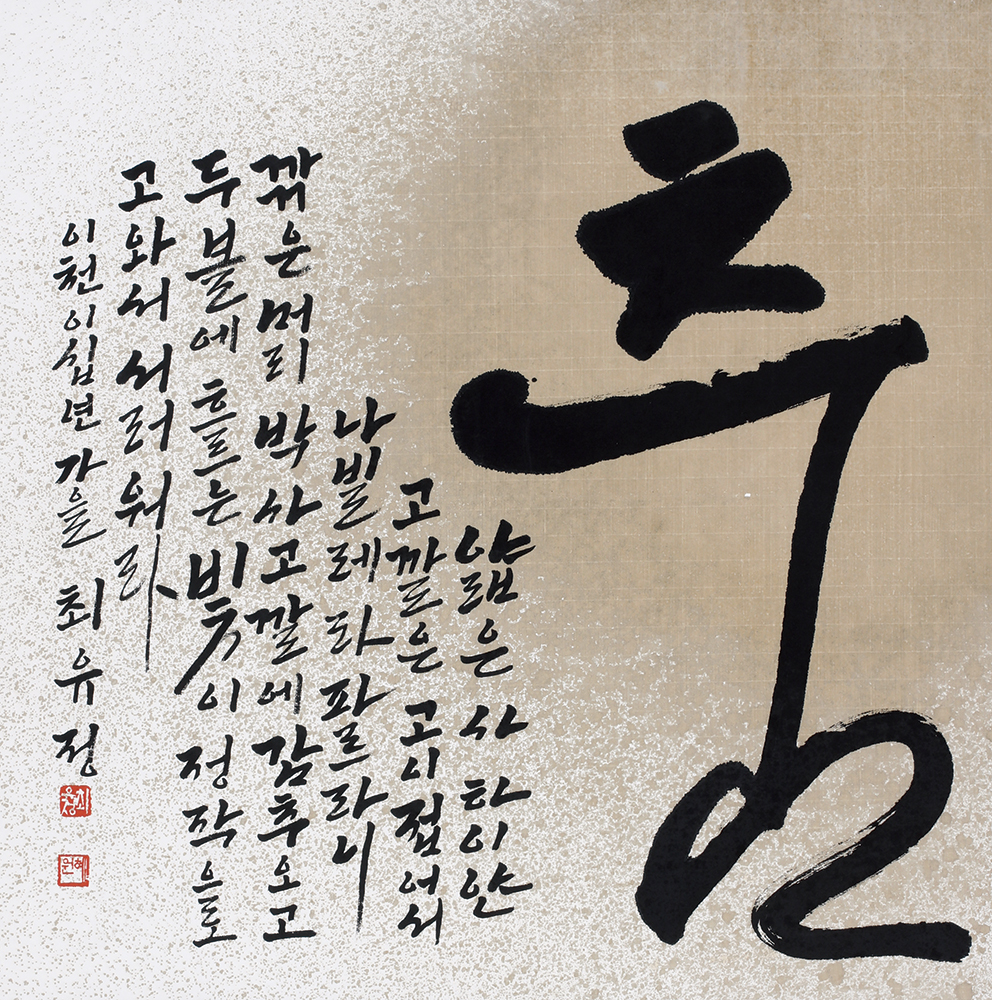 춤
얇은 사 하이얀
고깔은 고이 접어서
나빌레라 파르라니
깎은 머리 박사 고깔에 감추오고
두 볼에 흐르는 빛이 정작으로
고와서 서러워라
이천이십년 가을 최유정